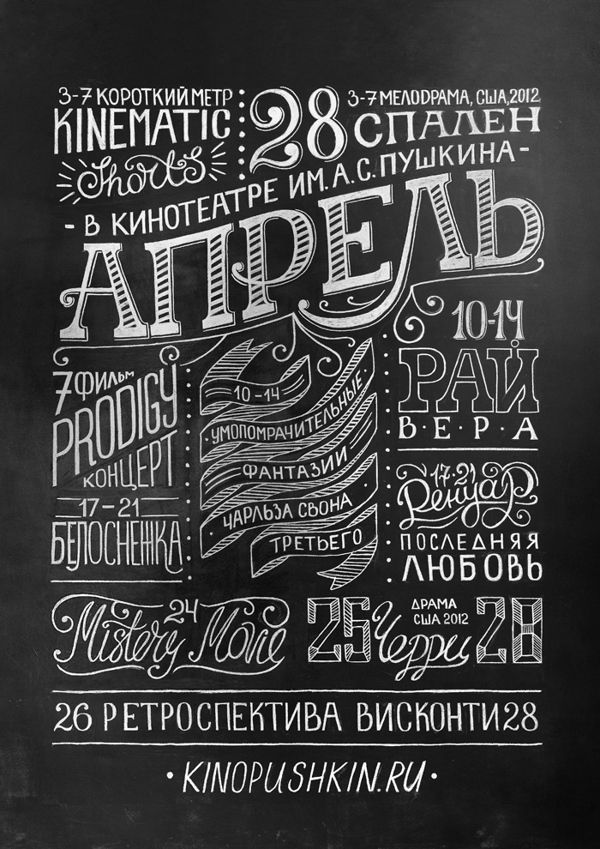 3-7 КОРОТКИЙ МЕТР
KINEMATIC
Shorts
28
3-7 МЕЛОДРАМА, США, 2012
СПАЛЕН
- В КИНОТЕАТРЕ ИМ. А. С. ПУШКИНА -
АПРЕЛЬ
7 ФИЛЬМ
PRODIGY
КОНЦЕРТ
17-21
БЕЛОСНЕЖКА
10-14
УМОПОМРАЧИТЕЛЬНЫЕ
ФАНТАЗИИ
ЧАРЛЬЗА СВОНА
ТРЕТЬЕГО
10-14
РАЙ
В·Е·Р·А
17-21
Ренуар
ПОСЛЕДНЯЯ
ЛЮБОВЬ
24
Mistery Movie
25 Черри 28
ДРАМА
США 2012
26 РЕТРОСПЕКТИВА ВИСКОНТИ 28
· KINOPUSHKIN.RU ·